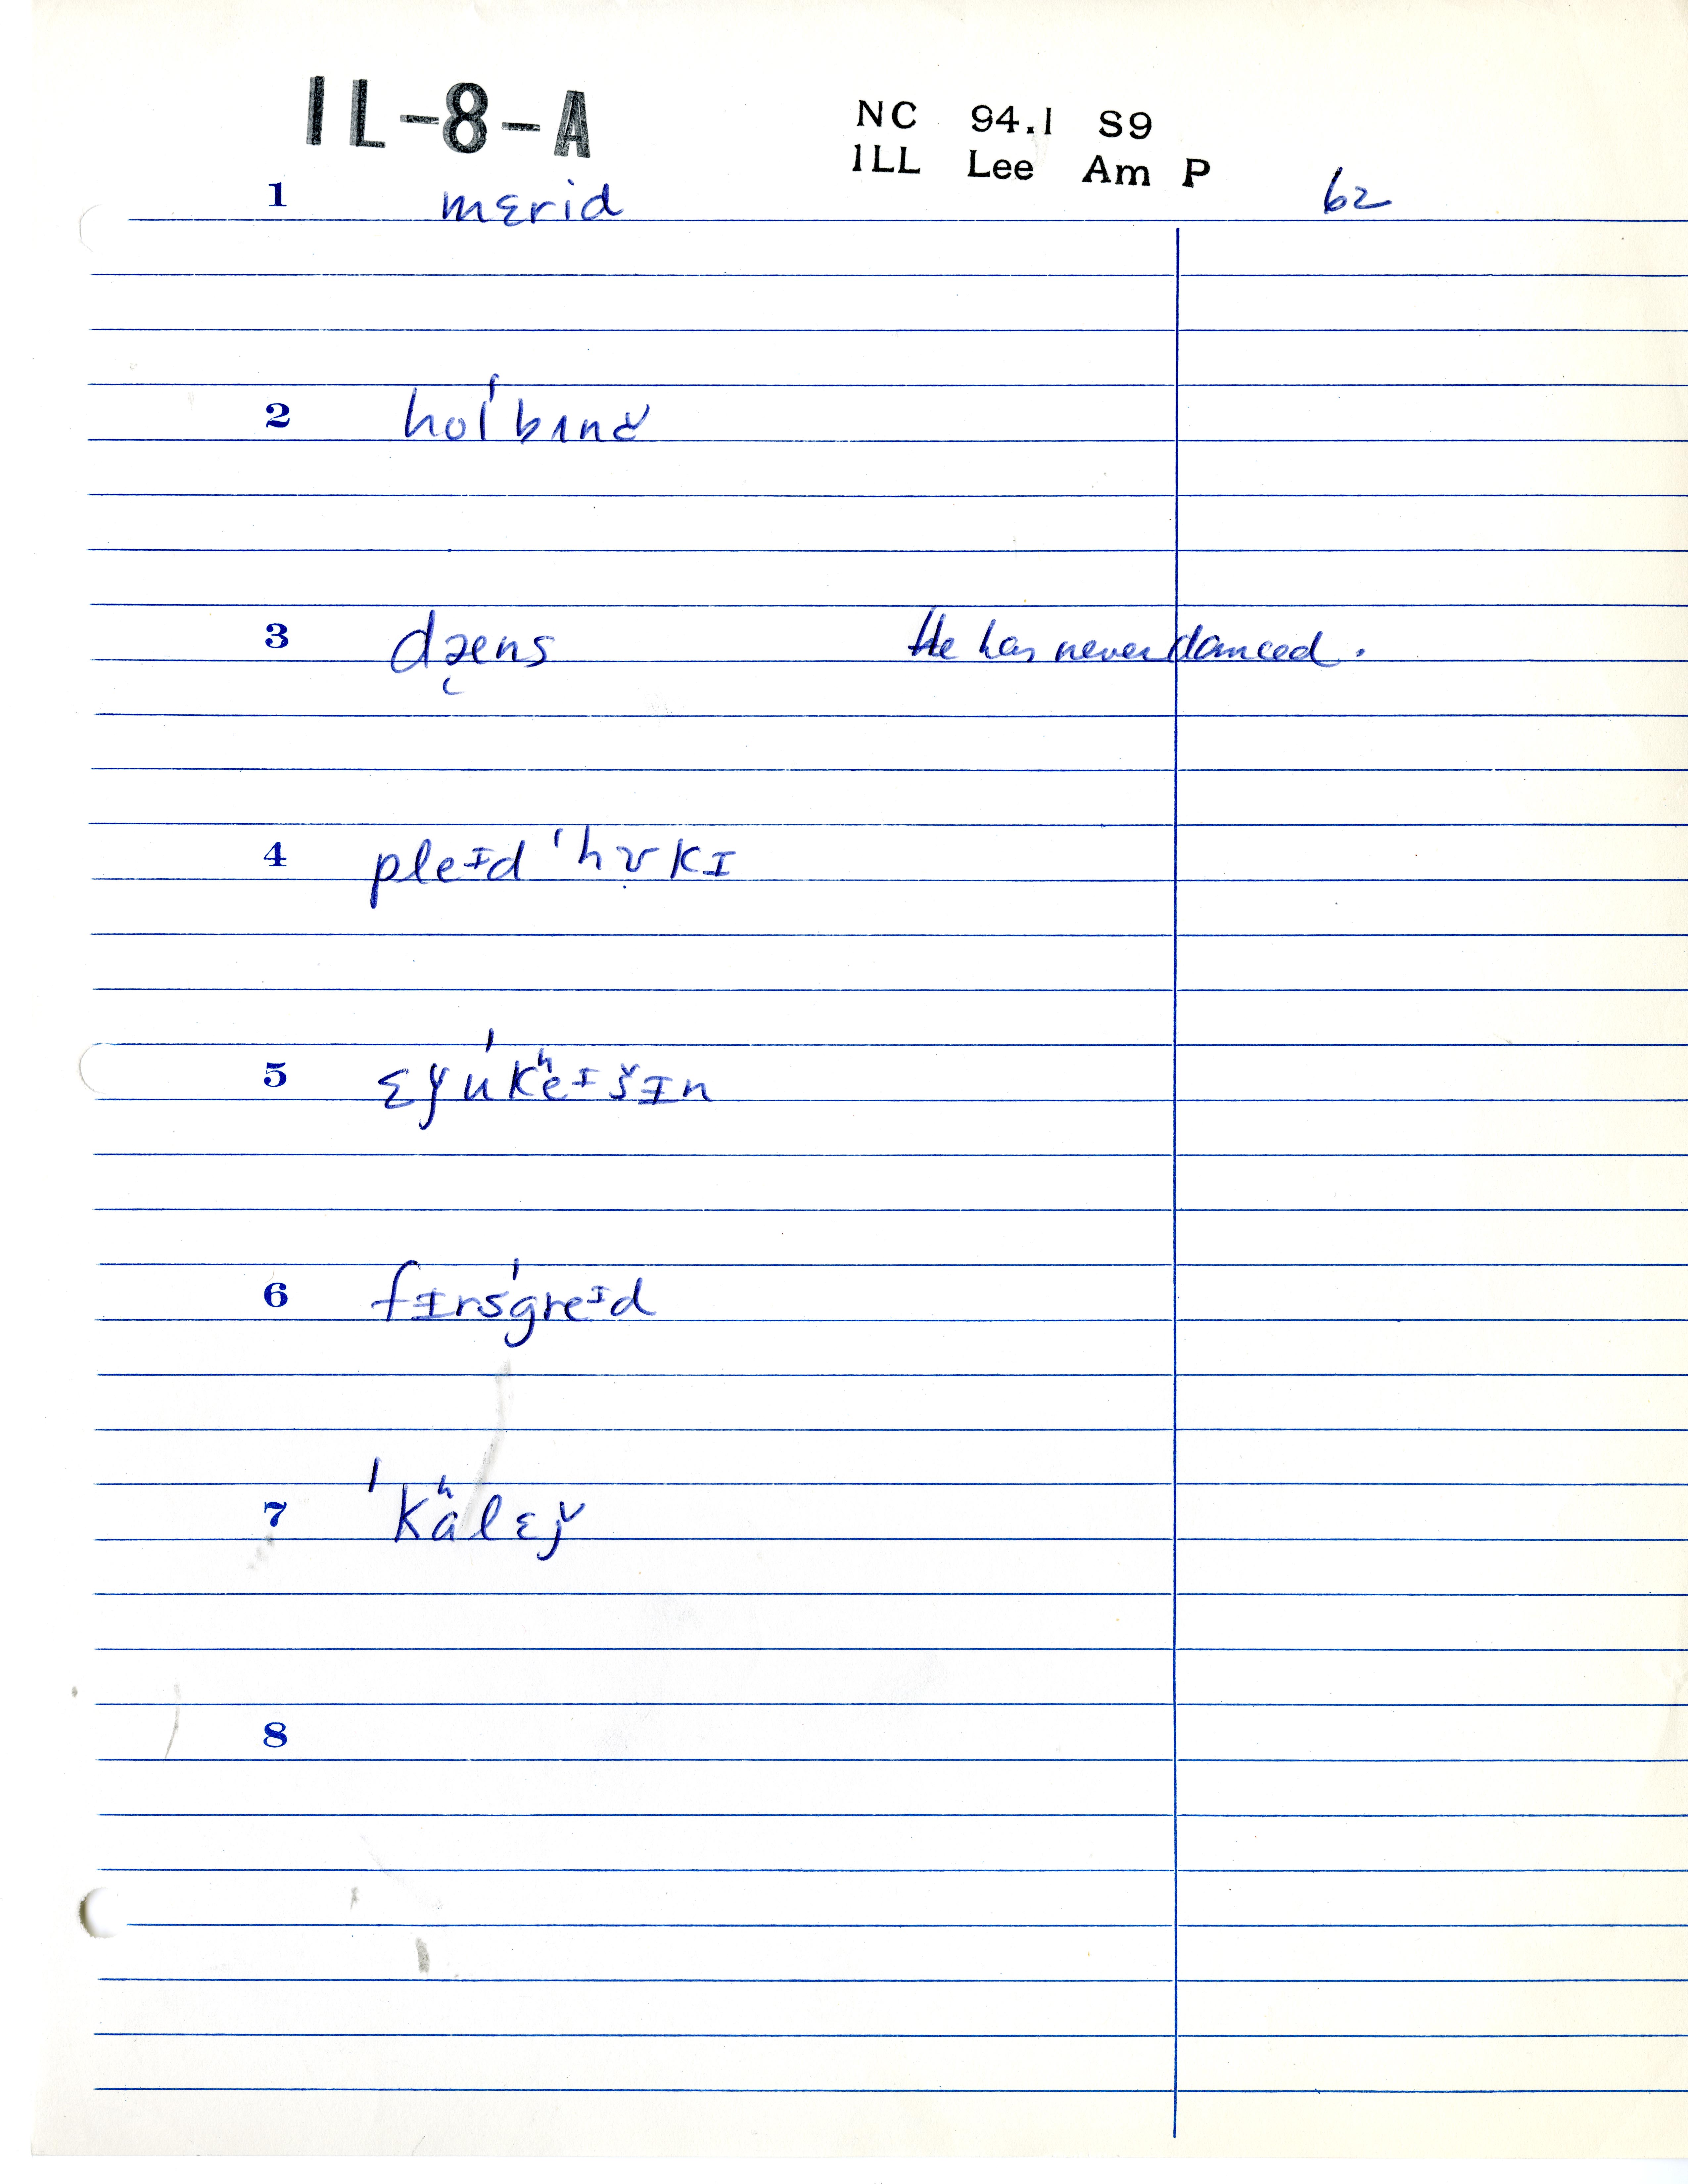 IL-8-A
NC 94.1 S9
ILL Lee Am P
1 mɛrid 62
2 hol'bɪnɚ
3 dæ̜ns He has never danced.
4 pleᵻd 'hʊ̣kɪ
5 ɛɟu'kʰeᵻšᵻn
6 fᵻrs'greᶦd
7 'kʰalɛǰ
8